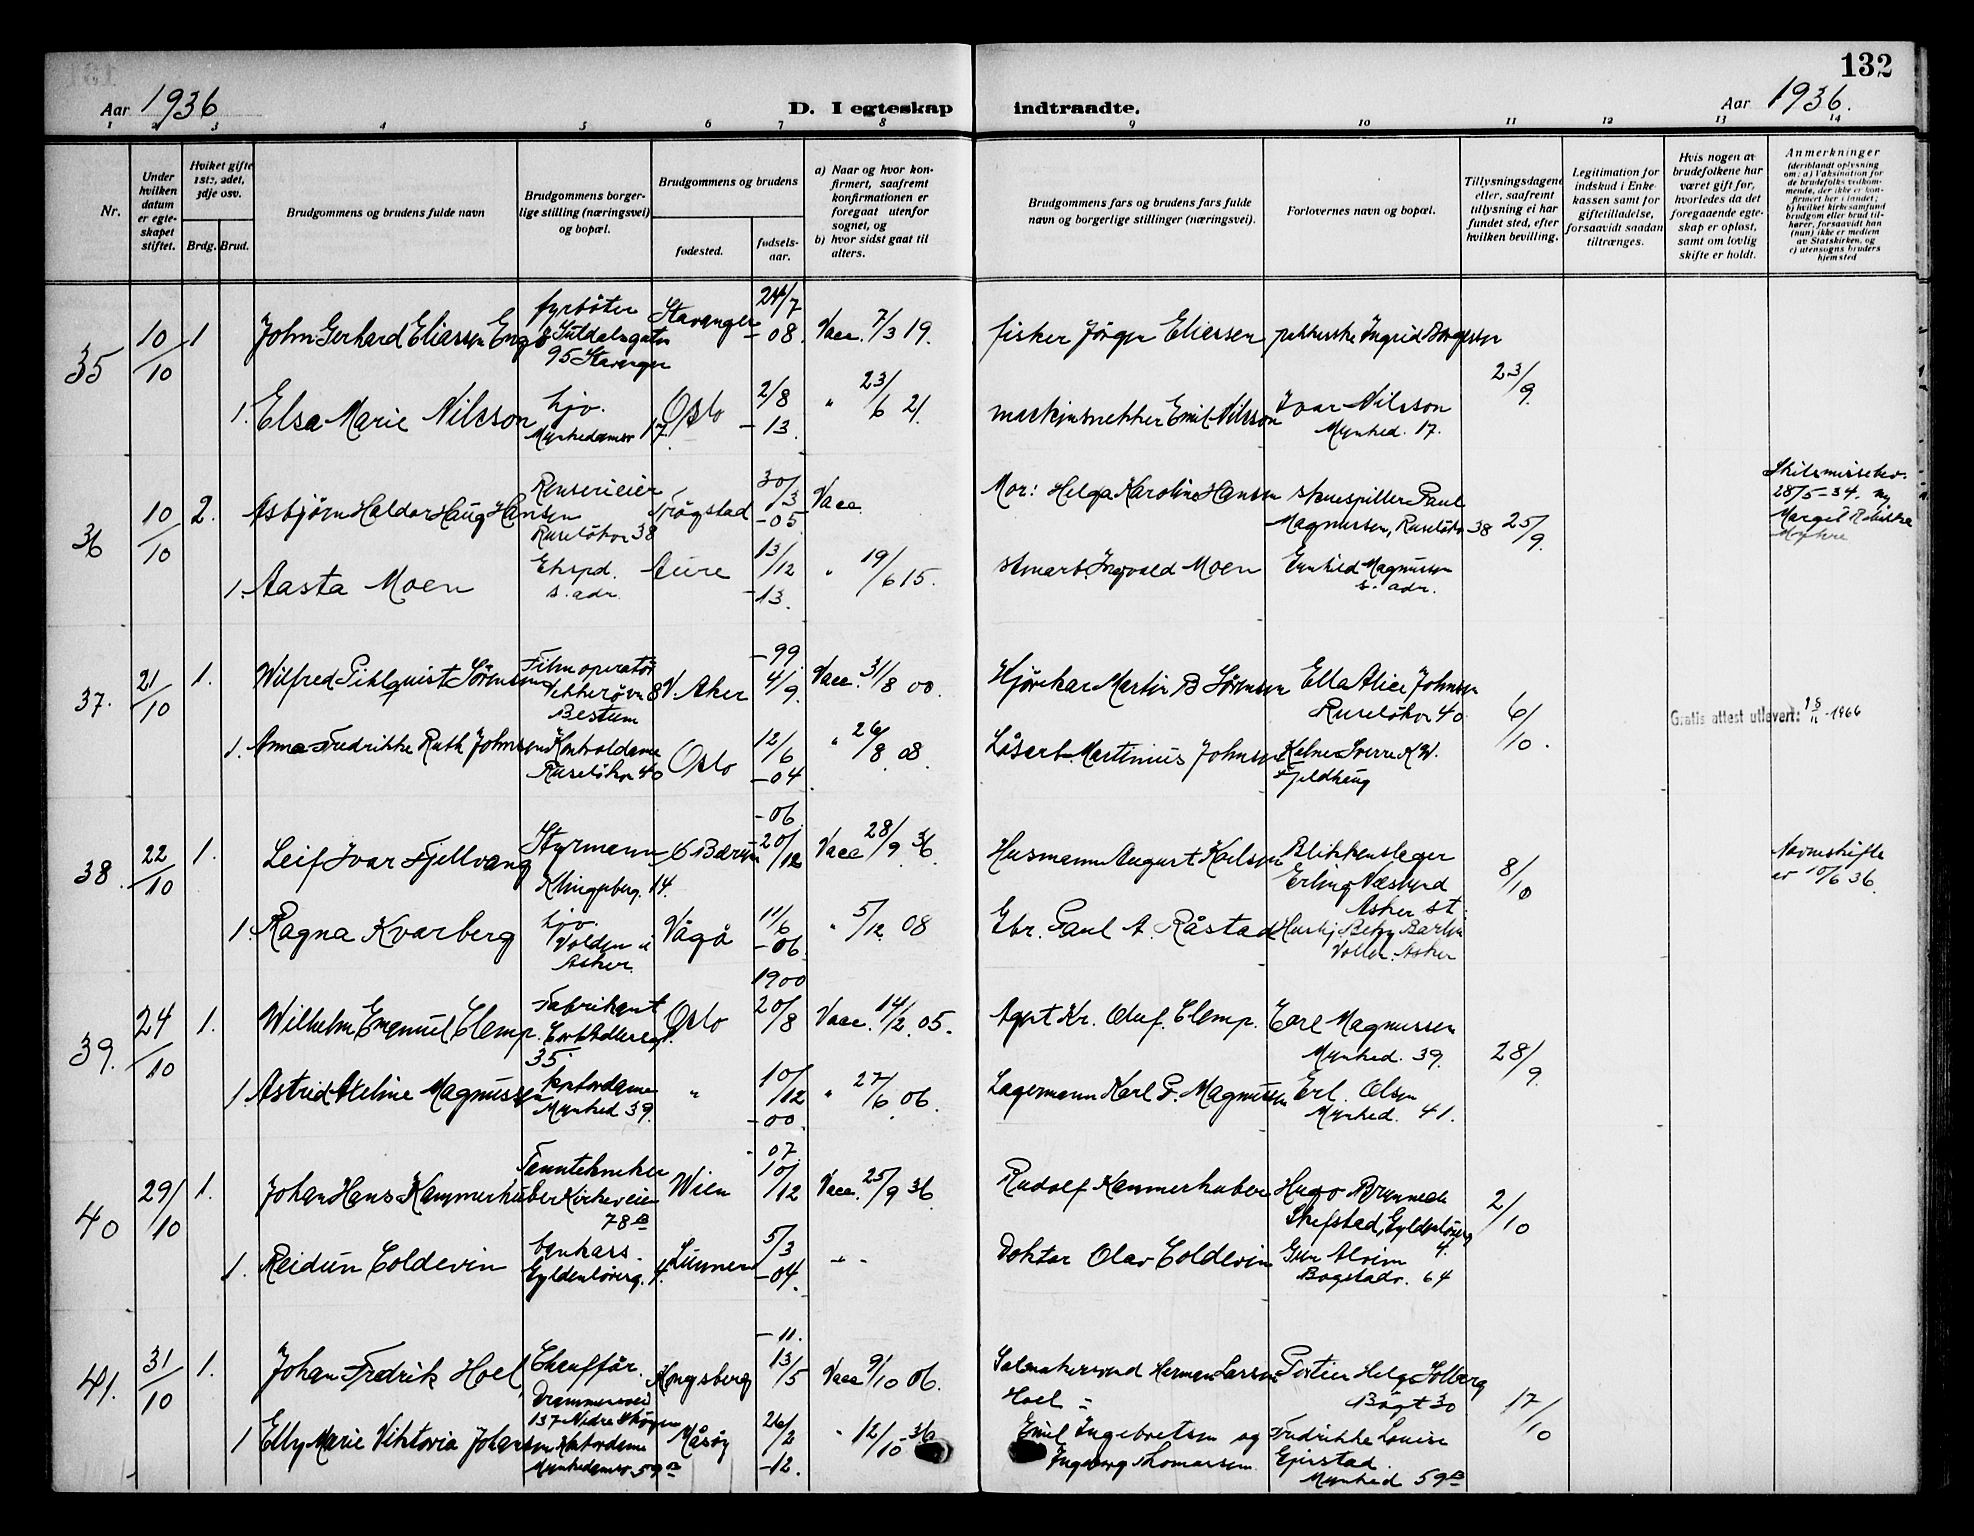 132
Aar 1936
D. I egteskap indtraadte.
Aar 1936.
1 2 3 4 5 6 7 8 9 10 11 12 13 14
Nr.
Under hvilken datum er egteskapet stiftet.
Hvilket gifte 1ste, 2det, 3dje osv.
Brdg. Brud.
Brudgommens og brudens fulde navn
Brudgommens borgerlige stilling (næringsvei) og bopæl.
Brudgommens og brudens
fødested.
fødselsaar.
a) Naar og hvor konfirmert, saafremt konfirmationen er foregaat utenfor sognet, og
b) hvor sidst gaat til alters.
Brudgommens fars og brudens fars fulde navn og borgerlige stillinger (næringsvei).
Forlovernes navn og bopæl.
Tillysningsdagene eller, saafremt tillysning ei har fundet sted, efter hvilken bevilling.
Legitimation for indskud i Enkekassen samt for giftetilladelse, forsaavidt saadan tiltrænges.
Hvis nogen av brudefolkene har været gift før, hvorledes da det foregaaende egteskap er opløst, samt om lovlig skifte er holdt.
Anmerkninger
(deriblandt oplysning om: a) Vaksination for de brudefolks vedkommende, der ikke er konfirmert her i landet; b) hvilket kirkesamfund brudgom eller brud tilhører, forsaavidt han (hun) ikke er medlem av Statskirken, og c) utensogns bruders hjemsted
35 10/10 1 John Gerhard Eliassen Engø fyrbøter Suldalsgaten 95 Stavanger Stavanger 24/7 -08. Vacc. 7/3 19. fisker Jörgen Eliassen Ingrid
23/9.
1. Elsa Marie Nilsson hjv. Munkedamsv 17. Oslo 2/8 -13. " 23/6 21. maskinsnekker Emil Nilsson Ivar Nilsson Munked. 17.
36 10/10 2. Asbjørn Haldor Haug Hansen Renserieier Ruseløkv 38 Trøgstad 30/3 -05 Vacc. Mor: Helga Karoline Hansen skuespiller Paul Magnussen, Ruseløkv 38 25/9. Skilsmissebev. 28/5-34.
1. Aasta Moen Eksped. s. adr. Aure 13/12 -13. " 19/6 15. Ingvald Moen Magnussen s. adr.
37. 21/10 1. Wilfred Pihlquist Sørensen Filmoperatør Vekkerøvn 8 Bestum V. Aker -99 4/9. Vacc. 31/8 00. Martin B Sørensen Ella Alice Johnsen Ruseløkv 40 6/10. Gratis attest utlevert: 18/11-1966
1. Anna Fredrikke Ruth Johnsen Kontordame Ruseløkv 40 Oslo 12/6 -04 " 26/8 08. Martinius Johnsen Kelner Sverre K W. Fjeldhaug
38. 22/10 1. Leif Ivar Fjellvang Styrmann Klingenberg. 14. Bærum -06. 20/12 Vacc 28/9 36. Husmann August Karlsen Blikkenslager Erling Næslund Asker st. 8/10 Navneskifte av 10/6 36.
1. Ragna Kvarberg hjv. Volden i Asker. Vågå 11/6 -06. " 5/12 08 Gbr. Paul A. Råstad Vollen. Asker
39. 24/10 1. Wilhelm Emanuel Clemp. Fabrikant Cort Adlersgt. 35 Oslo 1900 20/8 Vacc. 14/2. 05. Agent Kr. Oluf. Clemp. Carl Magnussen Munked. 39. 28/9.
1. Astrid Helene Magnussen kontordame Munked 39. " 10/12 -00. " 27/6. 06. Lagermann Karl F. Magnussen Erl. Olsen Munked. 41.
40 29/10 1. Johan Hans Kammerhuber Tanntekniker Kirkeveien 78 B Wien -07. 10/12 Vacc. 25/9 36 Rudolf Kammerhuber Hugo Gyldenløvesg 4. 2/10
1. Reidun Coldevin bankass. Gyldenløvesg. 4. Lunner 5/3 -04. - " - Doktor Olav Coldevin Alvim Bogstadv. 64
41. 31/10 1. Johan Fredrik Hoel Chauffør. Drammensvei 137 Nedre Skøyen Kongsberg -11. 13/5 Vacc 9/10 06. Salmakersvend Herman Larsen Hoel - Portier Helge Solberg Bögt 30 17/10
1 Elly Marie Viktoria Johansen Kontordame Munkedamsv. 59 B Måsøy 26/2 -12. " 12/10 -36 Emil Ingebretsen og Ingeborg Thomassen. Fredrikke Louise Gjerstad. Munked 59 B